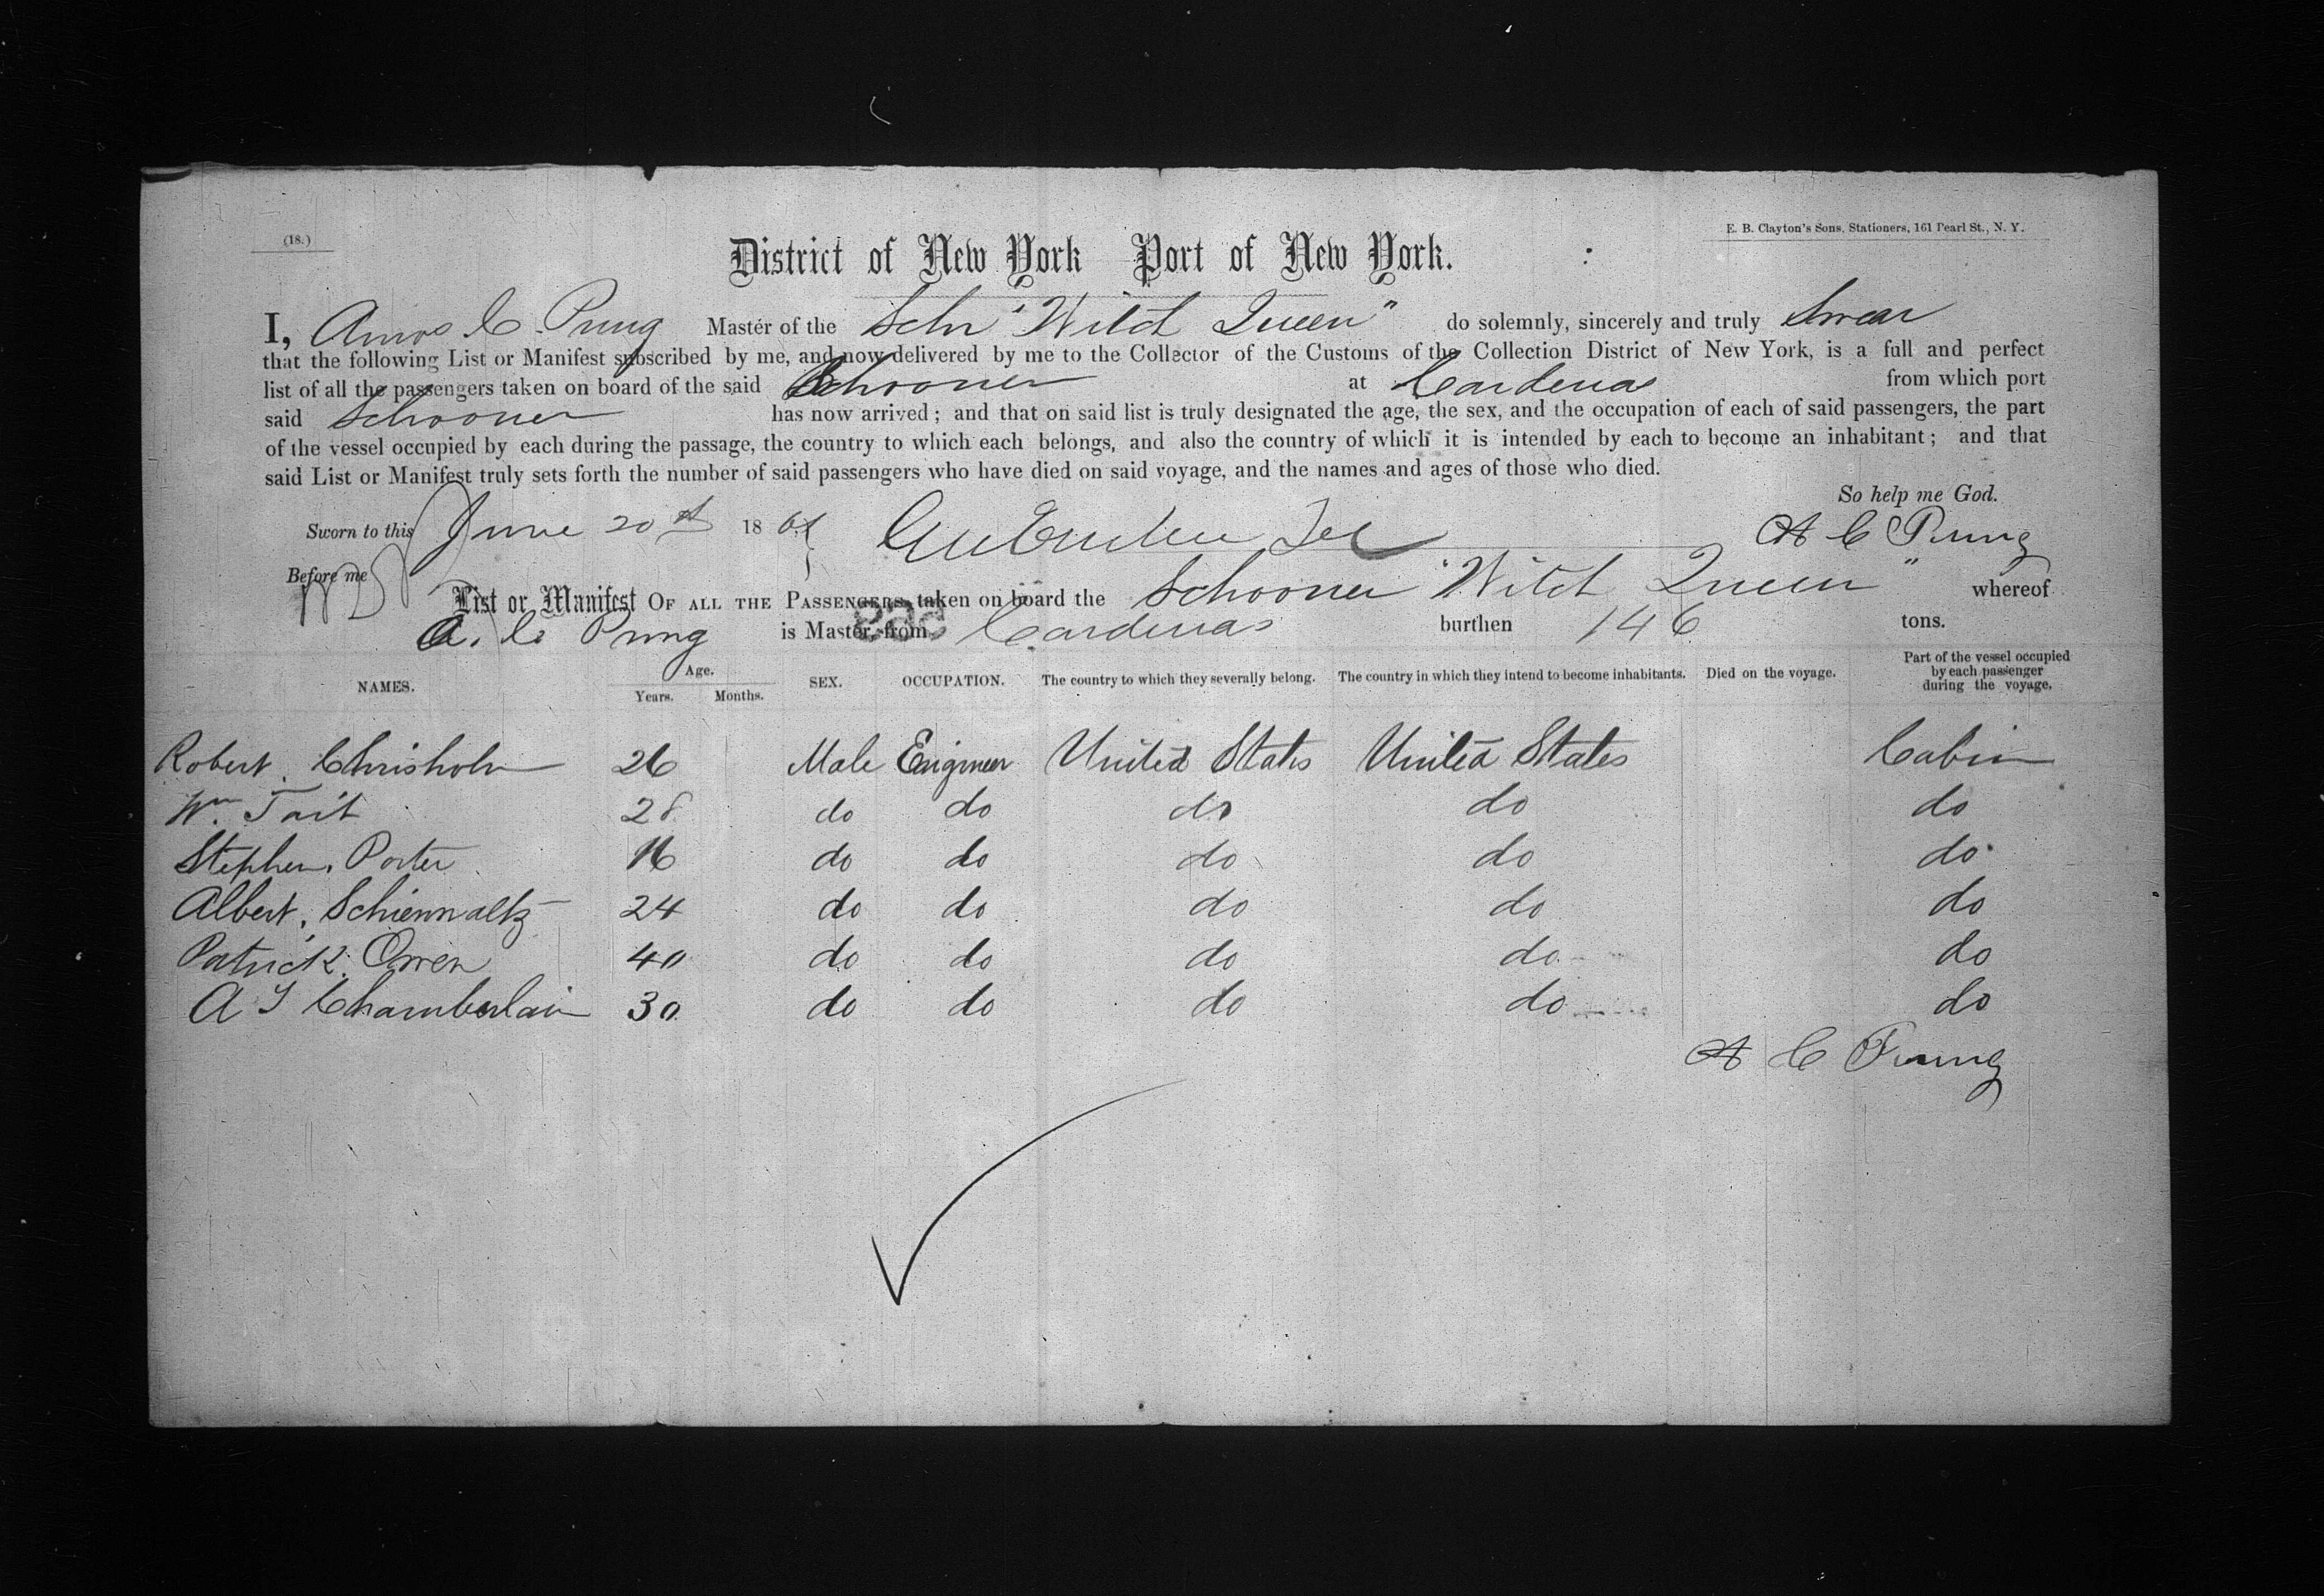 (18.)
E. B. Clayton's Sons, Stationers, 161 Pearl St., N. Y.
District of New York Port of New York.
I, Amos C. Pung Master of the Schr "Witch Queen" do solemnly, sincerely and truly Swear
that the following List or Manifest subscribed by me, and now delivered by me to the Collector of the Customs of the Collection District of New York, is a full and perfect
list of all the passengers taken on board of the said Schooner at Cardenas from which port
said Schooner has now arrived; and that on said list is truly designated the age, the sex, and the occupation of each of said passengers, the part
of the vessel occupied by each during the passage, the country to which each belongs, and also the country of which it is intended by each to become an inhabitant; and that
said List or Manifest truly sets forth the number of said passengers who have died on said voyage, and the names and ages of those who died.
So help me God.
Sworn to this June 20th 18 A C Pung
Before me
List or Manifest OF ALL THE PASSENGERS taken on board the Schooner "Witch Queen" whereof
A. C. Pung is Master, from Cardenas burthen 146 tons.
NAMES. Age. Years. Months. SEX. OCCUPATION. The country to which they severally belong. The country in which they intend to become inhabitants. Died on the voyage. Part of the vessel occupied by each passenger during the voyage.
Robert Chrisholm 26 Male Engineer United States United States Cabin
Wm Tait 28 do do do do do
Stephen Porter 16 do do do do do
Albert 24 do do do do do
Patrick Owen 40 do do do do do
A Chamberlain 30 do do do do do
A C Pung